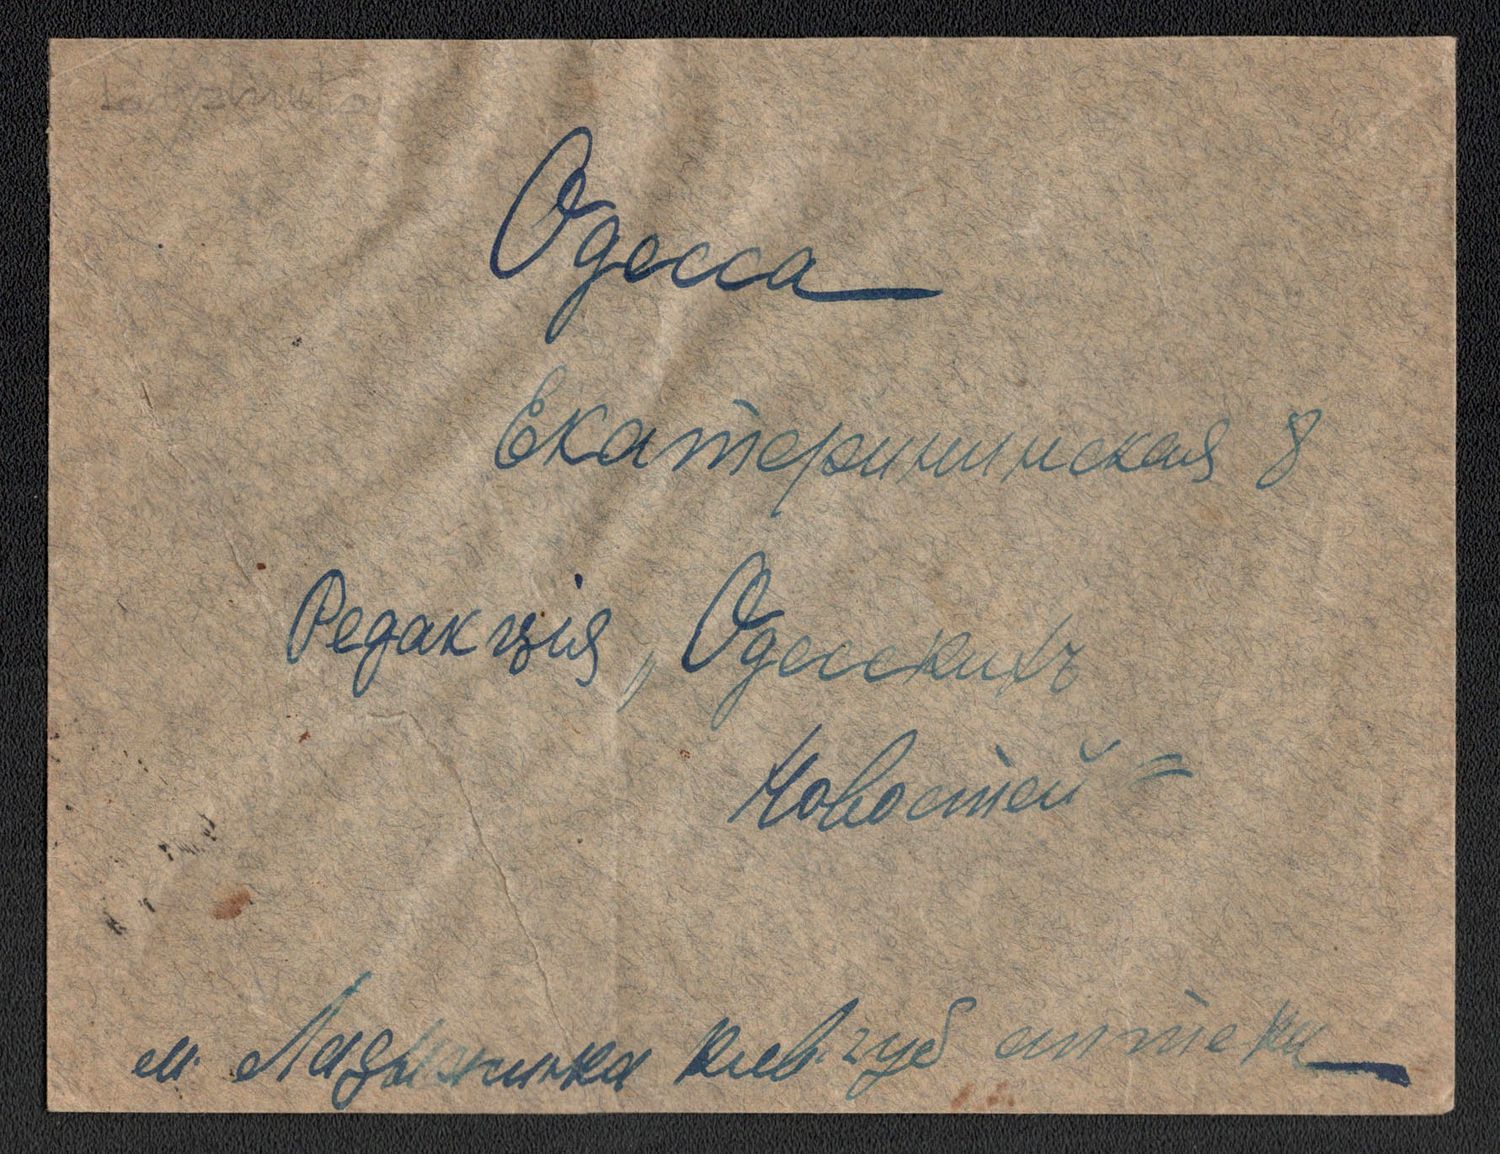 Одесса
Екатерининская 8
Редакція „Одесскихъ
Новостей"
м. Ладыжинка Киев. губ аптека